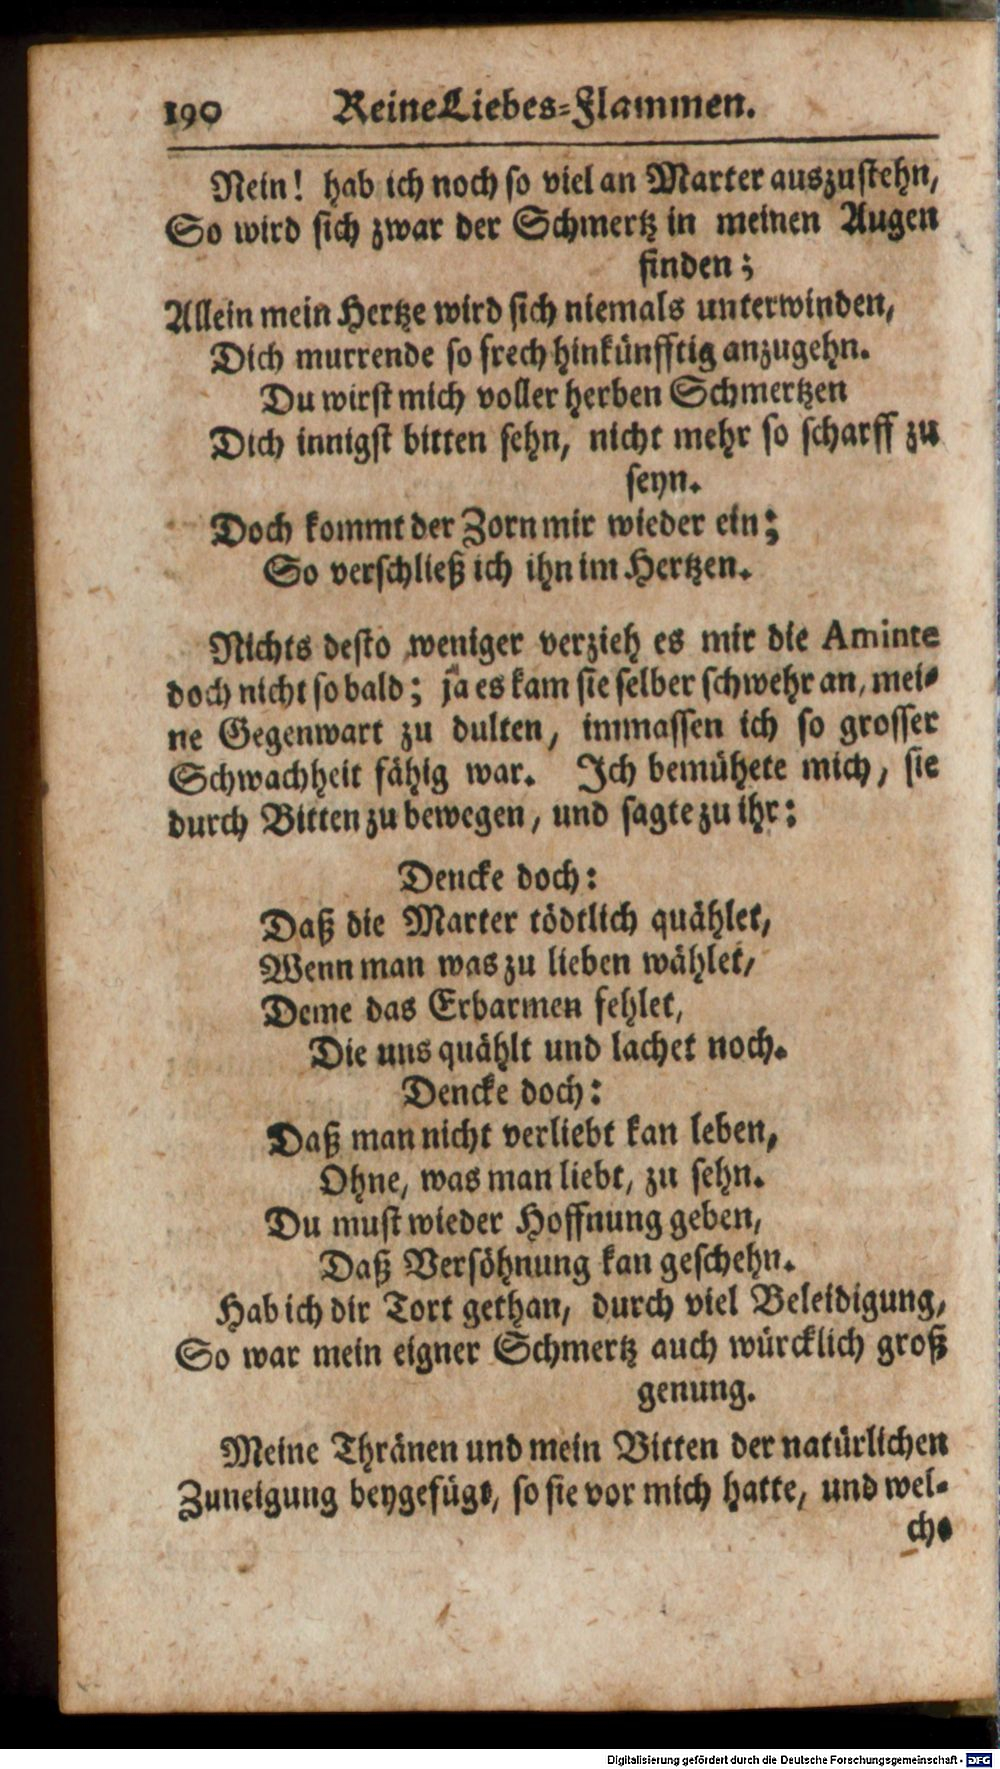 190 Reine Liebes-Flammen.
Nein! hab ich noch so viel an Marter auszustehn,
So wird sich zwar der Schmertz in meinen Augen
finden;
Allein mein Hertze wird sich niemals unterwinden,
Dich murrende so frech hinkünfftig anzugehn.
Du wirst mich voller herben Schmertzen
Dich innigst bitten sehn, nicht mehr so scharff zu
seyn.
Doch kommt der Zorn mir wieder ein;
So verschließ ich ihn im Hertzen.
Nichts desto weniger verzieh es mir die Aminte
doch nicht so bald; ja es kam sie selber schwehr an, mei-
ne Gegenwart zu dulten, immassen ich so grosser
Schwachheit fähig war. Ich bemühete mich, sie
durch Bitten zu bewegen, und sagte zu ihr:
Dencke doch:
Daß die Marter tödtlich quählet,
Wenn man was zu lieben wählet,
Deme das Erbarmen fehlet,
Die uns quählt und lachet noch.
Dencke doch:
Daß man nicht verliebt kan leben,
Ohne, was man liebt, zu sehn.
Du must wieder Hoffnung geben,
Daß Versöhnung kan geschehn.
Hab ich dir Tort gethan, durch viel Beleidigung,
So war mein eigner Schmertz auch würcklich groß
genung.
Meine Thränen und mein Bitten der natürlichen
Zuneigung beygefügt, so sie vor mich hatte, und wel-
che
Digitalisierung gefördert durch die Deutsche Forschungsgemeinschaft - DFG